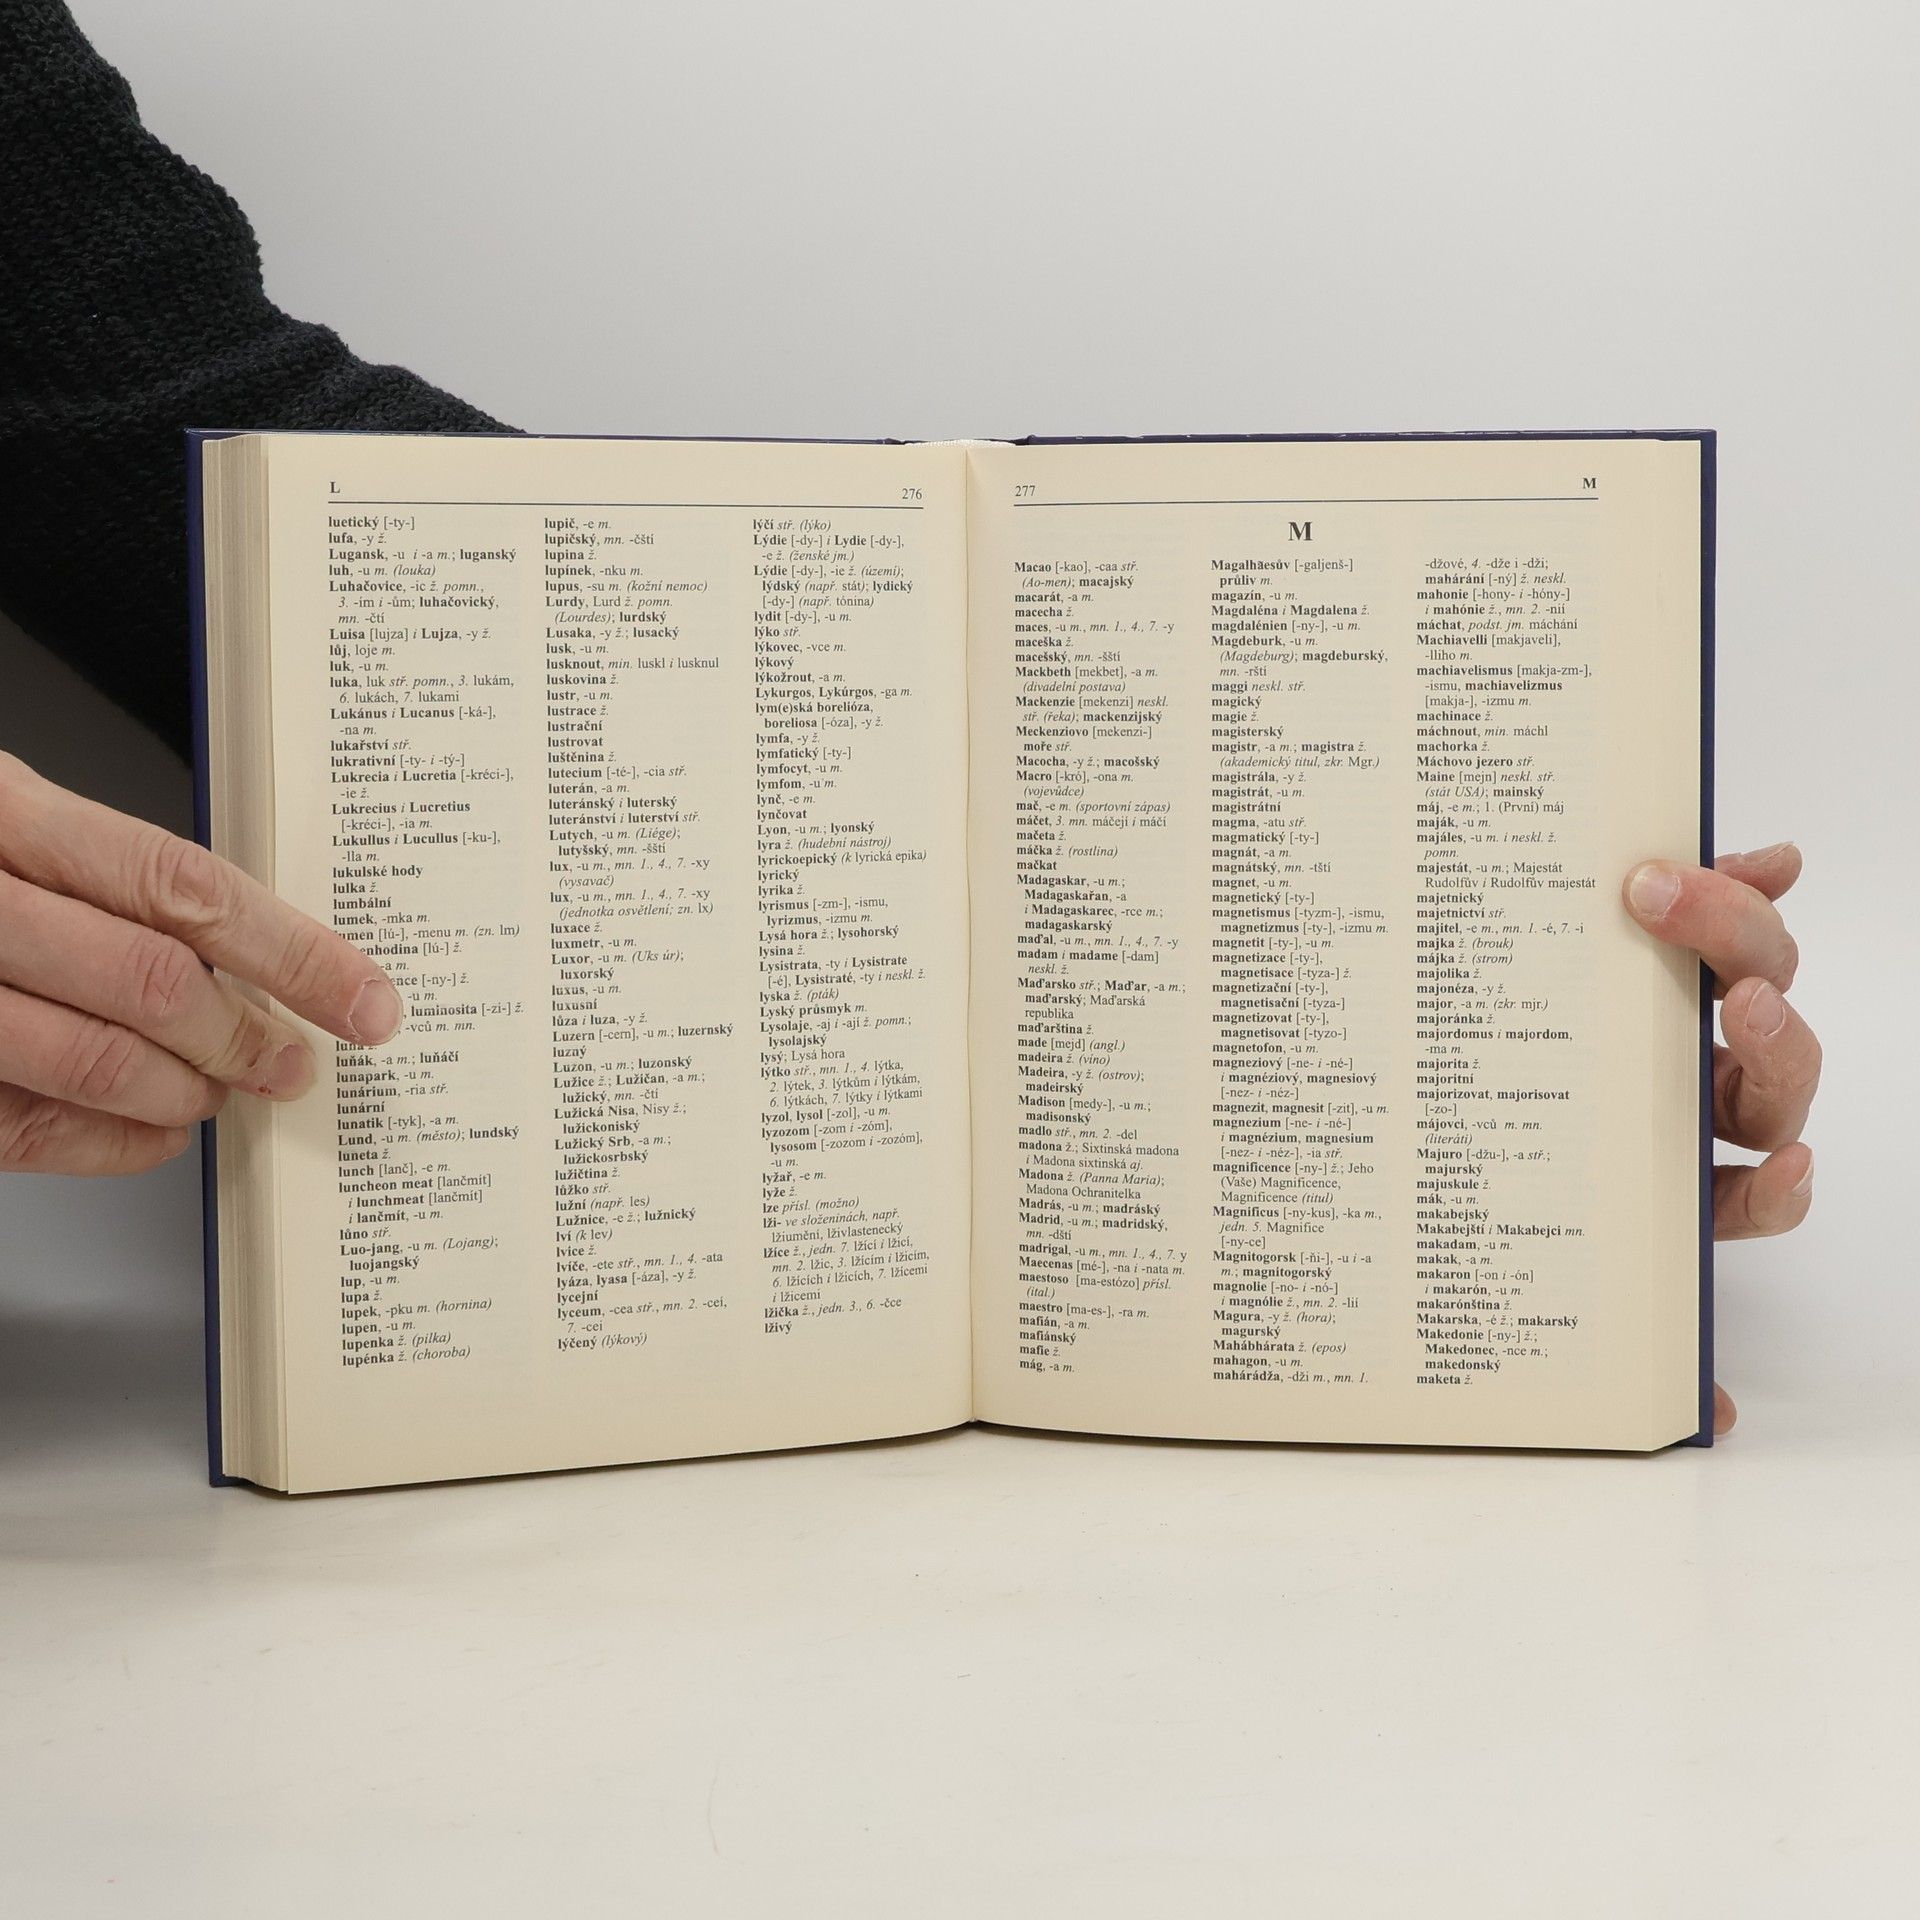 L
276
luetický [-ty-]
lufa, -y ž.
Lugansk, -u i -a m.; luganský
luh, -u m. (louka)
Luhačovice, -ic ž. pomn.,
3. -ím i -ům; luhačovický,
mn. -čtí
Luisa [lujza] i Lujza, -y ž.
lůj, loje m.
luk, -u m.
luka, luk stř. pomn., 3. lukám,
6. lukách, 7. lukami
Lukánus i Lucanus [-ká-],
-na m.
lukařství stř.
lukrativní [-ty- i -tý-]
Lukrecia i Lucretia [-kréci-],
-ie ž.
Lukrecius i Lucretius
[-kréci-], -ia m.
Lukullus i Lucullus [-ku-],
-lla m.
lukulské hody
lulka ž.
lumbální
lumek, -mka m.
lumen [lú-], -menu m. (zn. lm)
enhodina [lú-] ž.
-a m.
ence [-ny-] ž.
-u m.
, luminosita [-zi-] ž.
, -vců m. mn.
luna ž.
luňák, -a m.; luňáčí
lunapark, -u m.
lunárium, -ria stř.
lunární
lunatik [-tyk], -a m.
Lund, -u m. (město); lundský
luneta ž.
lunch [lanč], -e m.
luncheon meat [lančmít]
i lunchmeat [lančmít]
i lančmít, -u m.
lůno stř.
Luo-jang, -u m. (Lojang);
luojangský
lup, -u m.
lupa ž.
lupek, -pku m. (hornina)
lupen, -u m.
lupenka ž. (pilka)
lupénka ž. (choroba)
lupič, -e m.
lupičský, mn. -čští
lupina ž.
lupínek, -nku m.
lupus, -su m. (kožní nemoc)
Lurdy, Lurd ž. pomn.
(Lourdes); lurdský
Lusaka, -y ž.; lusacký
lusk, -u m.
lusknout, min. luskl i lusknul
luskovina ž.
lustr, -u m.
lustrace ž.
lustrační
lustrovat
luštěnina ž.
lutecium [-té-], -cia stř.
luterán, -a m.
luteránský i luterský
luteránství i luterství stř.
Lutych, -u m. (Liége);
lutyšský, mn. -šští
lux, -u m., mn. 1., 4., 7. -xy
(vysavač)
lux, -u m., mn. 1., 4., 7. -xy
(jednotka osvětlení; zn. lx)
luxace ž.
luxmetr, -u m.
Luxor, -u m. (Uks úr);
luxorský
luxus, -u m.
luxusní
lůza i luza, -y ž.
Luzern [-cern], -u m.; luzernský
luzný
Luzon, -u m.; luzonský
Lužice ž.; Lužičan, -a m.;
lužický, mn. -čtí
Lužická Nisa, Nisy ž.;
lužickoniský
Lužický Srb, -a m.;
lužickosrbský
lužičtina ž.
lůžko stř.
lužní (např. les)
Lužnice, -e ž.; lužnický
lví (k lev)
lvice ž.
lvíče, -ete stř., mn. 1., 4. -ata
lyáza, lyasa [-áza], -y ž.
lycejní
lyceum, -cea stř., mn. 2. -ceí,
7. -cei
lýčený (lýkový)
lýčí stř. (lýko)
Lýdie [-dy-] i Lydie [-dy-],
-e ž. (ženské jm.)
Lýdie [-dy-], -ie ž. (území);
lýdský (např. stát); lydický
[-dy-] (např. tónina)
lydit [-dy-], -u m.
lýko stř.
lýkovec, -vce m.
lýkový
lýkožrout, -a m.
Lykurgos, Lykúrgos, -ga m.
lym(e)ská borelióza,
boreliosa [-óza], -y ž.
lymfa, -y ž.
lymfatický [-ty-]
lymfocyt, -u m.
lymfom, -u m.
lynč, -e m.
lynčovat
Lyon, -u m.; lyonský
lyra ž. (hudební nástroj)
lyrickoepický (k lyrická epika)
lyrický
lyrika ž.
lyrismus [-zm-], -ismu,
lyrizmus, -izmu m.
Lysá hora ž.; lysohorský
lysina ž.
Lysistrata, -ty i Lysistrate
[-é], Lysistraté, -ty i neskl. ž.
lyska ž. (pták)
Lyský průsmyk m.
Lysolaje, -aj i -ají ž. pomn.;
lysolajský
lysý; Lysá hora
lýtko stř., mn. 1., 4. lýtka,
2. lýtek, 3. lýtkům i lýtkám,
6. lýtkách, 7. lýtky i lýtkami
lyzol, lysol [-zol], -u m.
lyzozom [-zom i -zóm],
lysosom [-zozom i -zozóm],
-u m.
lyžař, -e m.
lyže ž.
lze přísl. (možno)
lži- ve složeninách, např.
lžiumění, lživlastenecký
lžíce ž., jedn. 7. lžící i lžicí,
mn. 2. lžic, 3. lžícím i lžicím,
6. lžících i lžicích, 7. lžícemi
i lžicemi
lžička ž., jedn. 3., 6. -čce
lživý
277
M
M
Macao [-kao], -caa stř.
(Ao-men); macajský
macarát, -a m.
macecha ž.
maces, -u m., mn. 1., 4., 7. -y
maceška ž.
macešský, mn. -šští
Mackbeth [mekbet], -a m.
(divadelní postava)
Mackenzie [mekenzi] neskl.
stř. (řeka); mackenzijský
Meckenziovo [mekenzi-]
moře stř.
Macocha, -y ž.; macošský
Macro [-kró], -ona m.
(vojevůdce)
mač, -e m. (sportovní zápas)
máčet, 3. mn. máčejí i máčí
mačeta ž.
máčka ž. (rostlina)
mačkat
Madagaskar, -u m.;
Madagaskařan, -a
i Madagaskarec, -rce m.;
madagaskarský
maďal, -u m., mn. 1., 4., 7. -y
madam i madame [-dam]
neskl. ž.
Maďarsko stř.; Maďar, -a m.;
maďarský; Maďarská
republika
maďarština ž.
made [mejd] (angl.)
madeira ž. (víno)
Madeira, -y ž. (ostrov);
madeirský
Madison [medy-], -u m.;
madisonský
madlo stř., mn. 2. -del
madona ž.; Sixtinská madona
i Madona sixtinská aj.
Madona ž. (Panna Maria);
Madona Ochranitelka
Madrás, -u m.; madráský
Madrid, -u m.; madridský,
mn. -dští
madrigal, -u m., mn. 1., 4., 7. y
Maecenas [mé-], -na i -nata m.
maestoso [ma-estózo] přísl.
(ital.)
maestro [ma-es-], -ra m.
mafián, -a m.
mafiánský
mafie ž.
mág, -a m.
Magalhãesův [-galjenš-]
průliv m.
magazín, -u m.
Magdaléna i Magdalena ž.
magdalénien [-ny-], -u m.
Magdeburk, -u m.
(Magdeburg); magdeburský,
mn. -rští
maggi neskl. stř.
magický
magie ž.
magisterský
magistr, -a m.; magistra ž.
(akademický titul, zkr. Mgr.)
magistrála, -y ž.
magistrát, -u m.
magistrátní
magma, -atu stř.
magmatický [-ty-]
magnát, -a m.
magnátský, mn. -tští
magnet, -u m.
magnetický [-ty-]
magnetismus [-tyzm-], -ismu,
magnetizmus [-ty-], -izmu m.
magnetit [-ty-], -u m.
magnetizace [-ty-],
magnetisace [-tyza-] ž.
magnetizační [-ty-],
magnetisační [-tyza-]
magnetizovat [-ty-],
magnetisovat [-tyzo-]
magnetofon, -u m.
magneziový [-ne- i -né-]
i magnéziový, magnesiový
[-nez- i -néz-]
magnezit, magnesit [-zit], -u m.
magnezium [-ne- i -né-]
i magnézium, magnesium
[-nez- i -néz-], -ia stř.
magnificence [-ny-] ž.; Jeho
(Vaše) Magnificence,
Magnificence (titul)
Magnificus [-ny-kus], -ka m.,
jedn. 5. Magnifice
[-ny-ce]
Magnitogorsk [-ňi-], -u i -a
m.; magnitogorský
magnolie [-no- i -nó-]
i magnólie ž., mn. 2. -lií
Magura, -y ž. (hora);
magurský
Mahábhárata ž. (epos)
mahagon, -u m.
mahárádža, -dži m., mn. 1.
-džové, 4. -dže i -dži;
mahárání [-ný] ž. neskl.
mahonie [-hony- i -hóny-]
i mahónie ž., mn. 2. -nií
máchat, podst. jm. máchání
Machiavelli [makjaveli],
-lliho m.
machiavelismus [makja-zm-],
-ismu, machiavelizmus
[makja-], -izmu m.
machinace ž.
máchnout, min. máchl
machorka ž.
Máchovo jezero stř.
Maine [mejn] neskl. stř.
(stát USA); mainský
máj, -e m.; 1. (První) máj
maják, -u m.
majáles, -u m. i neskl. ž.
pomn.
majestát, -u m.; Majestát
Rudolfův i Rudolfův majestát
majetnický
majetnictví stř.
majitel, -e m., mn. 1. -é, 7. -i
majka ž. (brouk)
májka ž. (strom)
majolika ž.
majonéza, -y ž.
major, -a m. (zkr. mjr.)
majoránka ž.
majordomus i majordom,
-ma m.
majorita ž.
majoritní
majorizovat, majorisovat
[-zo-]
májovci, -vců m. mn.
(literáti)
Majuro [-džu-], -a stř.;
majurský
majuskule ž.
mák, -u m.
makabejský
Makabejští i Makabejci mn.
makadam, -u m.
makak, -a m.
makaron [-on i -ón]
i makarón, -u m.
makarónština ž.
Makarska, -é ž.; makarský
Makedonie [-ny-] ž.;
Makedonec, -nce m.;
makedonský
maketa ž.